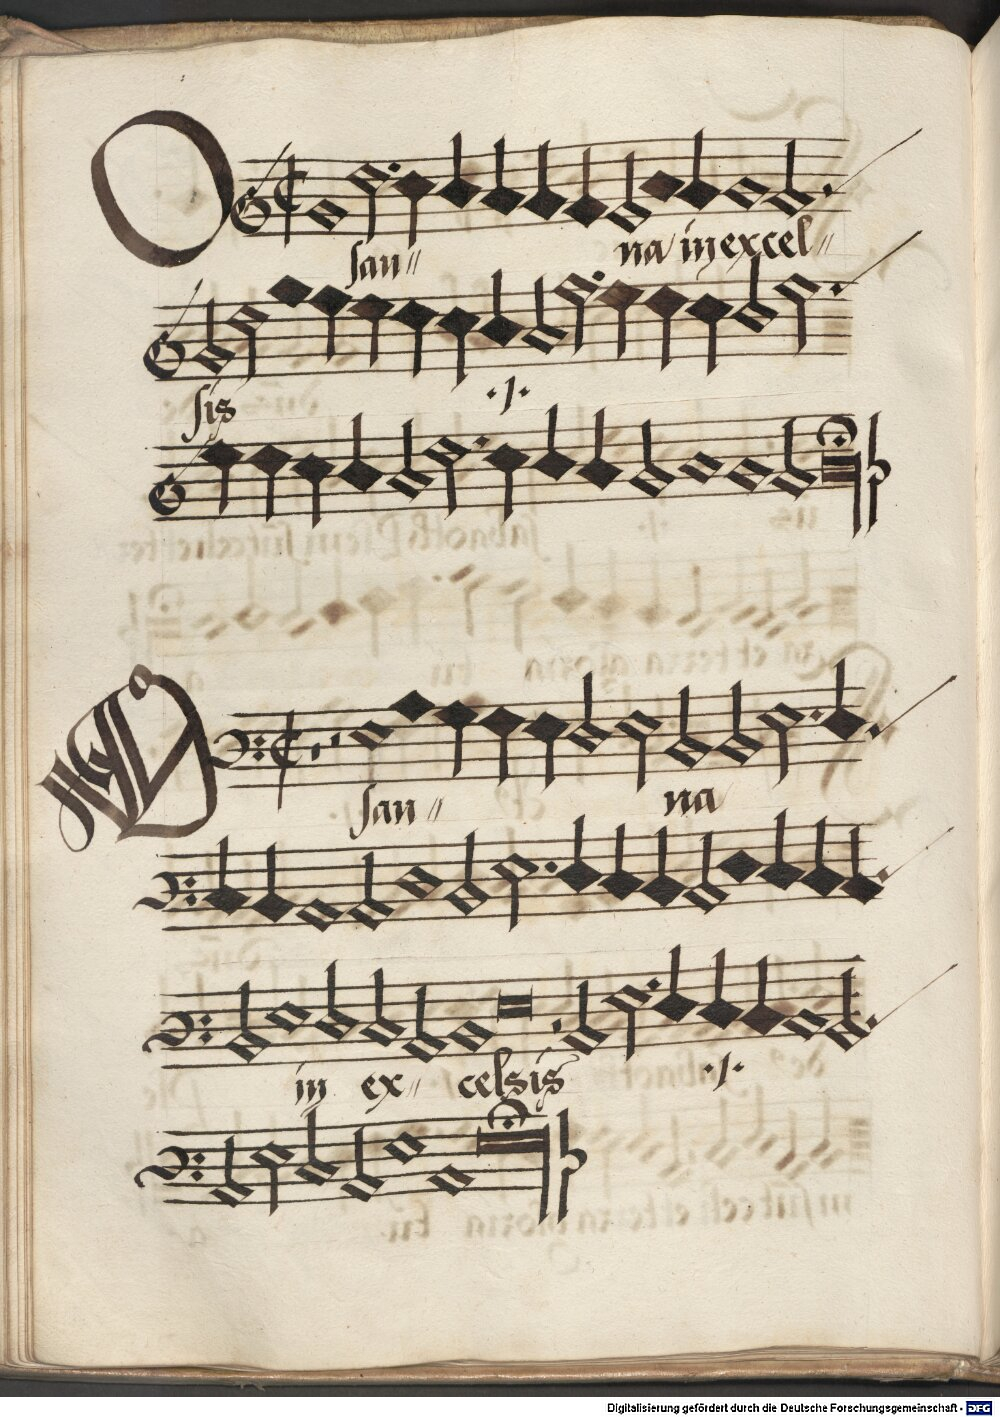 O
san〃 na in excel〃
sis ·/·
O
san〃 na
in ex〃 celsis ·/·
Digitalisierung gefördert durch die Deutsche Forschungsgemeinschaft - DFG